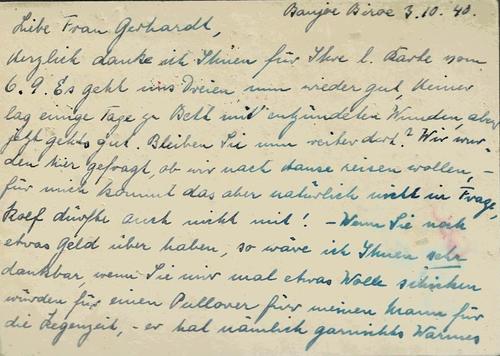 Banjoe Biroe 3.10.40.
Liebe Frau Gerhardt,
herzlich danke ich Ihnen für Ihre l. Karte vom
6.9. Es geht uns Dreien nun wieder gut, Heiner
lag einige Tage zu Bett mit entzündeten Wunden, aber
jetzt gehts gut. Bleiben Sie nun weiter dort? Wir wur-
den hier gefragt, ob wir nach Hause reisen wollen, -
für mich kommt das aber natürlich nicht in Frage,
Rolf dürfte auch nicht mit! - Wenn Sie noch
etwas Geld über haben, so wäre ich Ihnen sehr
dankbar, wenn Sie mir mal etwas Wolle schicken
würden für einen Pullover für meinen Mann für
die Regenzeit, - er hat nämlich garnichts Warmes